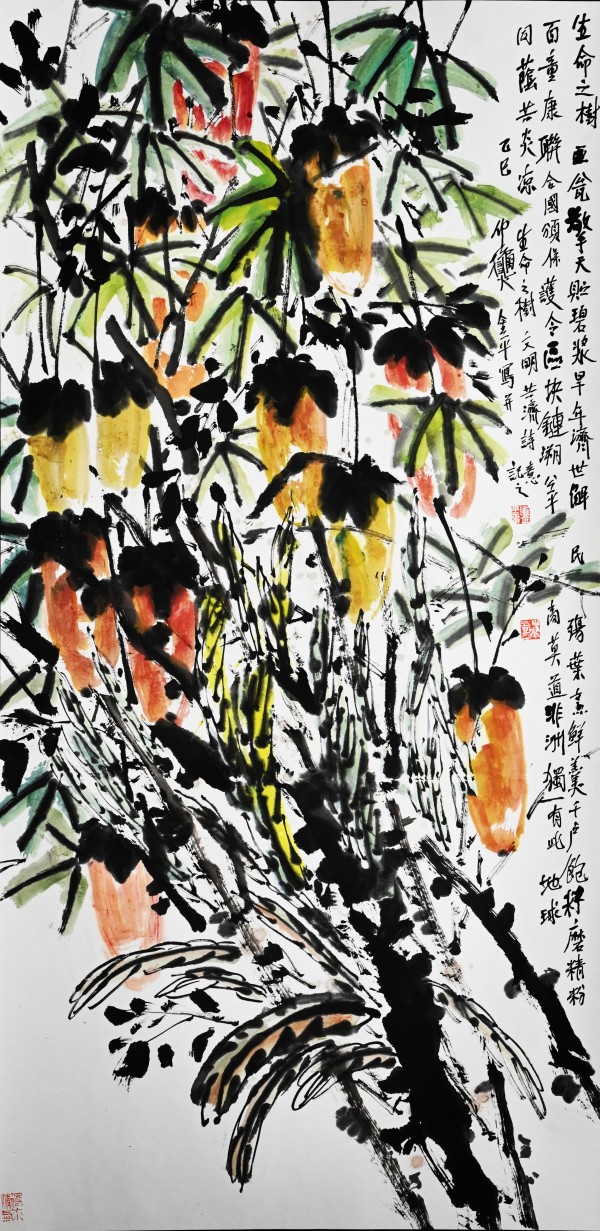 生命之樹 巨瓮擎天贮碧漿旱年濟世解民殤葉烹鮮羹千户飽籽磨精粉
百童康聯合國頒保護令區块鏈溯公平商莫道非洲獨有此地球
同蔭共炎凉 生命之樹 文明共濟詩意
乙巳仲夏 金平寫并記之